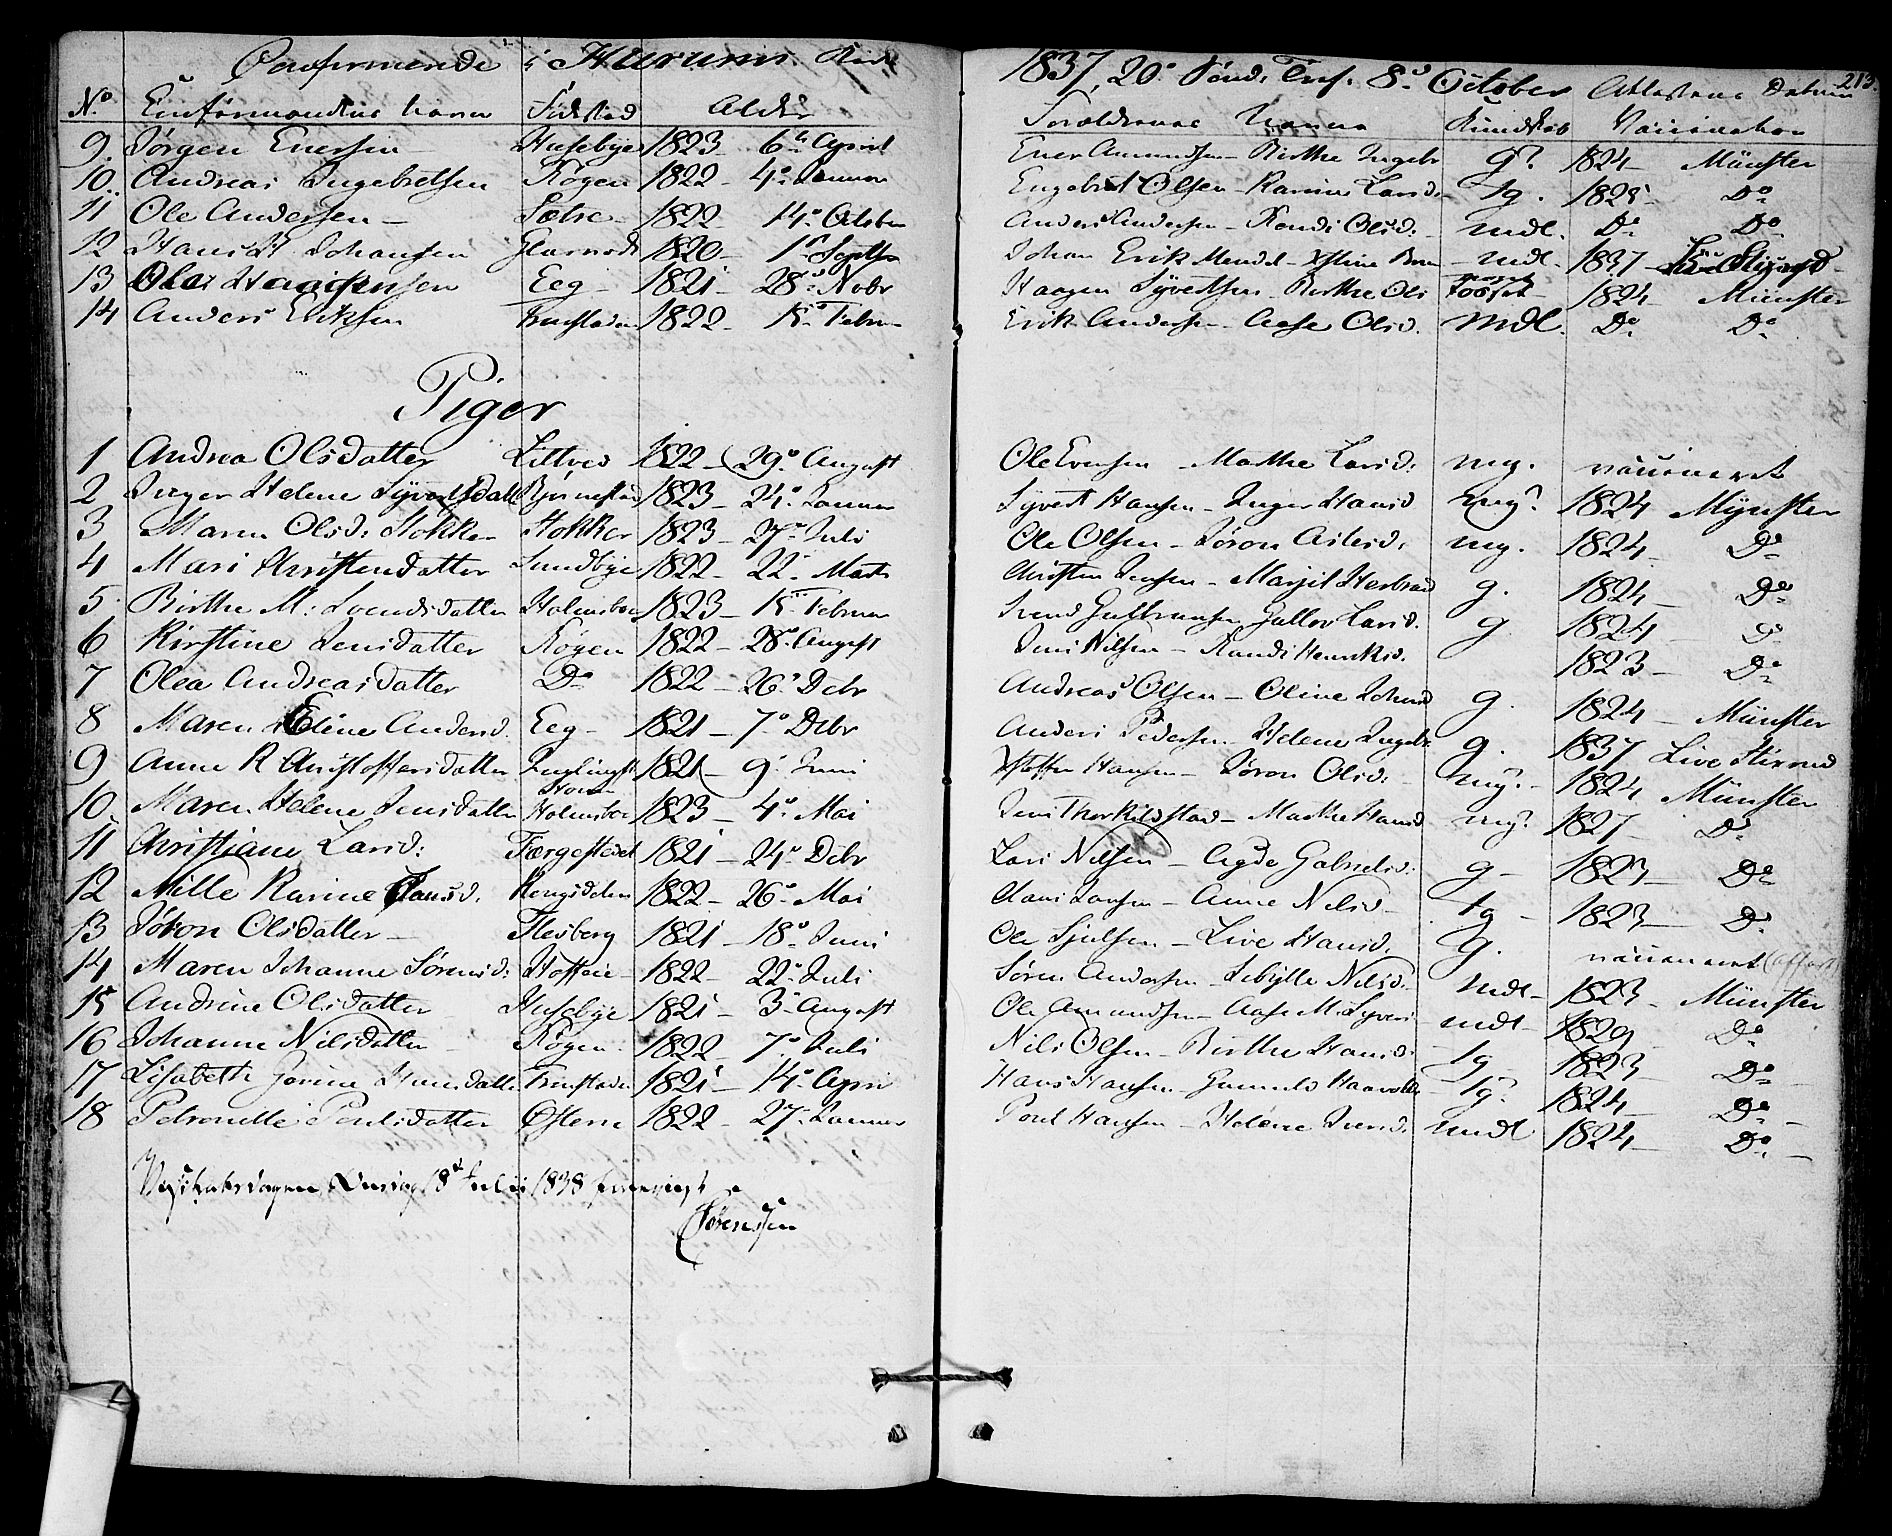 Confirmerede i Hurums Kirke 1837, 20de Sönd. Trf. 8de October 213.
No. Navn Födested Alder Forældrenes Navne Kundskab Attestens Datum Vaccination
9 Jørgen Enersen Husebye 1823 6te April Ener Amundsen – Birthe Ingebr g? 1824 Münster
10. Andreas Ingebretsen Røgen 1822 – 4de Januar Engebret Olsen – Karine Larsd. tg. 1825 Do
11 Ole Andersen – Sætre 1822 14de October Anders Andersen – Randi Olsd: mdl. Do Do
12 Hans H Johansen 1820 – 1e Septbr Johan Erik Mendel – mdl. 1837
13 Ole Haagensen Eeg – 1821 – 28de Novbr Haagen Syvertsen – Birthe Ols 1824 – Münster
14 Anders Eriksen 1822 – 15de Februar Erik Andersen – Aase Olsd. mdl. Do Do
Piger
1 Andrea Olsdatter Littved 1822 – 29de August Ole Evensen – Marthe Larsd: mg. vaccineret
2 Inger Helene Syvertsdatt Bjørnestad 1823 – 24de Januar Syvert Hansen – Inger Hansd mg? 1824 Mÿnster
3 Maren Olsd: Stokker Stokker 1823 – 27de Juli Ole Olsen – Jøron mg. 1824 – Do
4 Mari Christensdatter Sundbye 1822 – 22de Marts Christen Jensen – Marjit Herbrand g. 1824 – Do
5 Birthe M: Svendsdatter Holmsboe 1823 – 15de Februar Svend Gulbransen Gullov Larsd. g 1824 – Do
6 Kirstine Jensdatter Røgen 1822 – 28de August Jens Nilsen – Randi Henriksd. 1823 – Do
7 Olea Andreasdatter Do 1822 – 26de Debr Andreas Olsen – Oline Johnsd g. 1824 – Münster
8 Maren Eline Andersd. Eeg – 1821 – 7de Debr Anders Pedersen – Helene Ingebr g. 1837 Live
9 Anne K Christoffersdatter 1821 – 9de Juni Xstoffer Hansen – Jøron Olsd: mg? – 1824 Münster
10. Maren Helene Jensdatter Holmsboe 1823 – 4de Mai Jens Thorkildstad – Marthe Hansd mg? 1827 – Do
11 Christiane Larsd: Færgestedet 1821 – 24de Debr Lars Nilsen – Gabrielsd: g – 1823 – Do
12 Mille Karine Clausd. 1822 – 26de Mai – Anne Nilsd – tg – 1823 – Do
13 Jøron Olsdatter – Flesberg 1821 – 18de Juni Ole – Live Hansd. g. vaccineret
14 Maren Johanne Sørensd: 1822 – 22de Juli Søren Andersen – Sebylle Nilsd: mdl – 1823 – Münster
15 Andrine Olsdatter Husebye 1821 – 3de August Ole Amundsen – Aase M. Syvers mdl – 1829 Do
16 Johanne Nilsdatter Røgen 1822 – 7de Juli Nils Olsen – Birthe Hansd: tg 1823 – Do
17 Lisabeth Gorine Hansdatter 1821 – 14de April Hans Hansen – Haavolds tg? 1824 – Do –
18 Petronelle Poulsdatter Østern 1822 – 27de Januar Poul Hansen – Helene Iversd: mdl 1824 – Do –
18de Julii 1838
Sørenssen